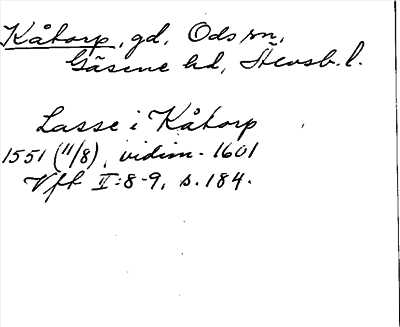 Kåtorp, gd, Ods sn,
Gäsene hd, Älvsb. l.
Lasse i Kåtorp
1551 (11/8), vidim. 1601
Vft II:8-9, s. 184.